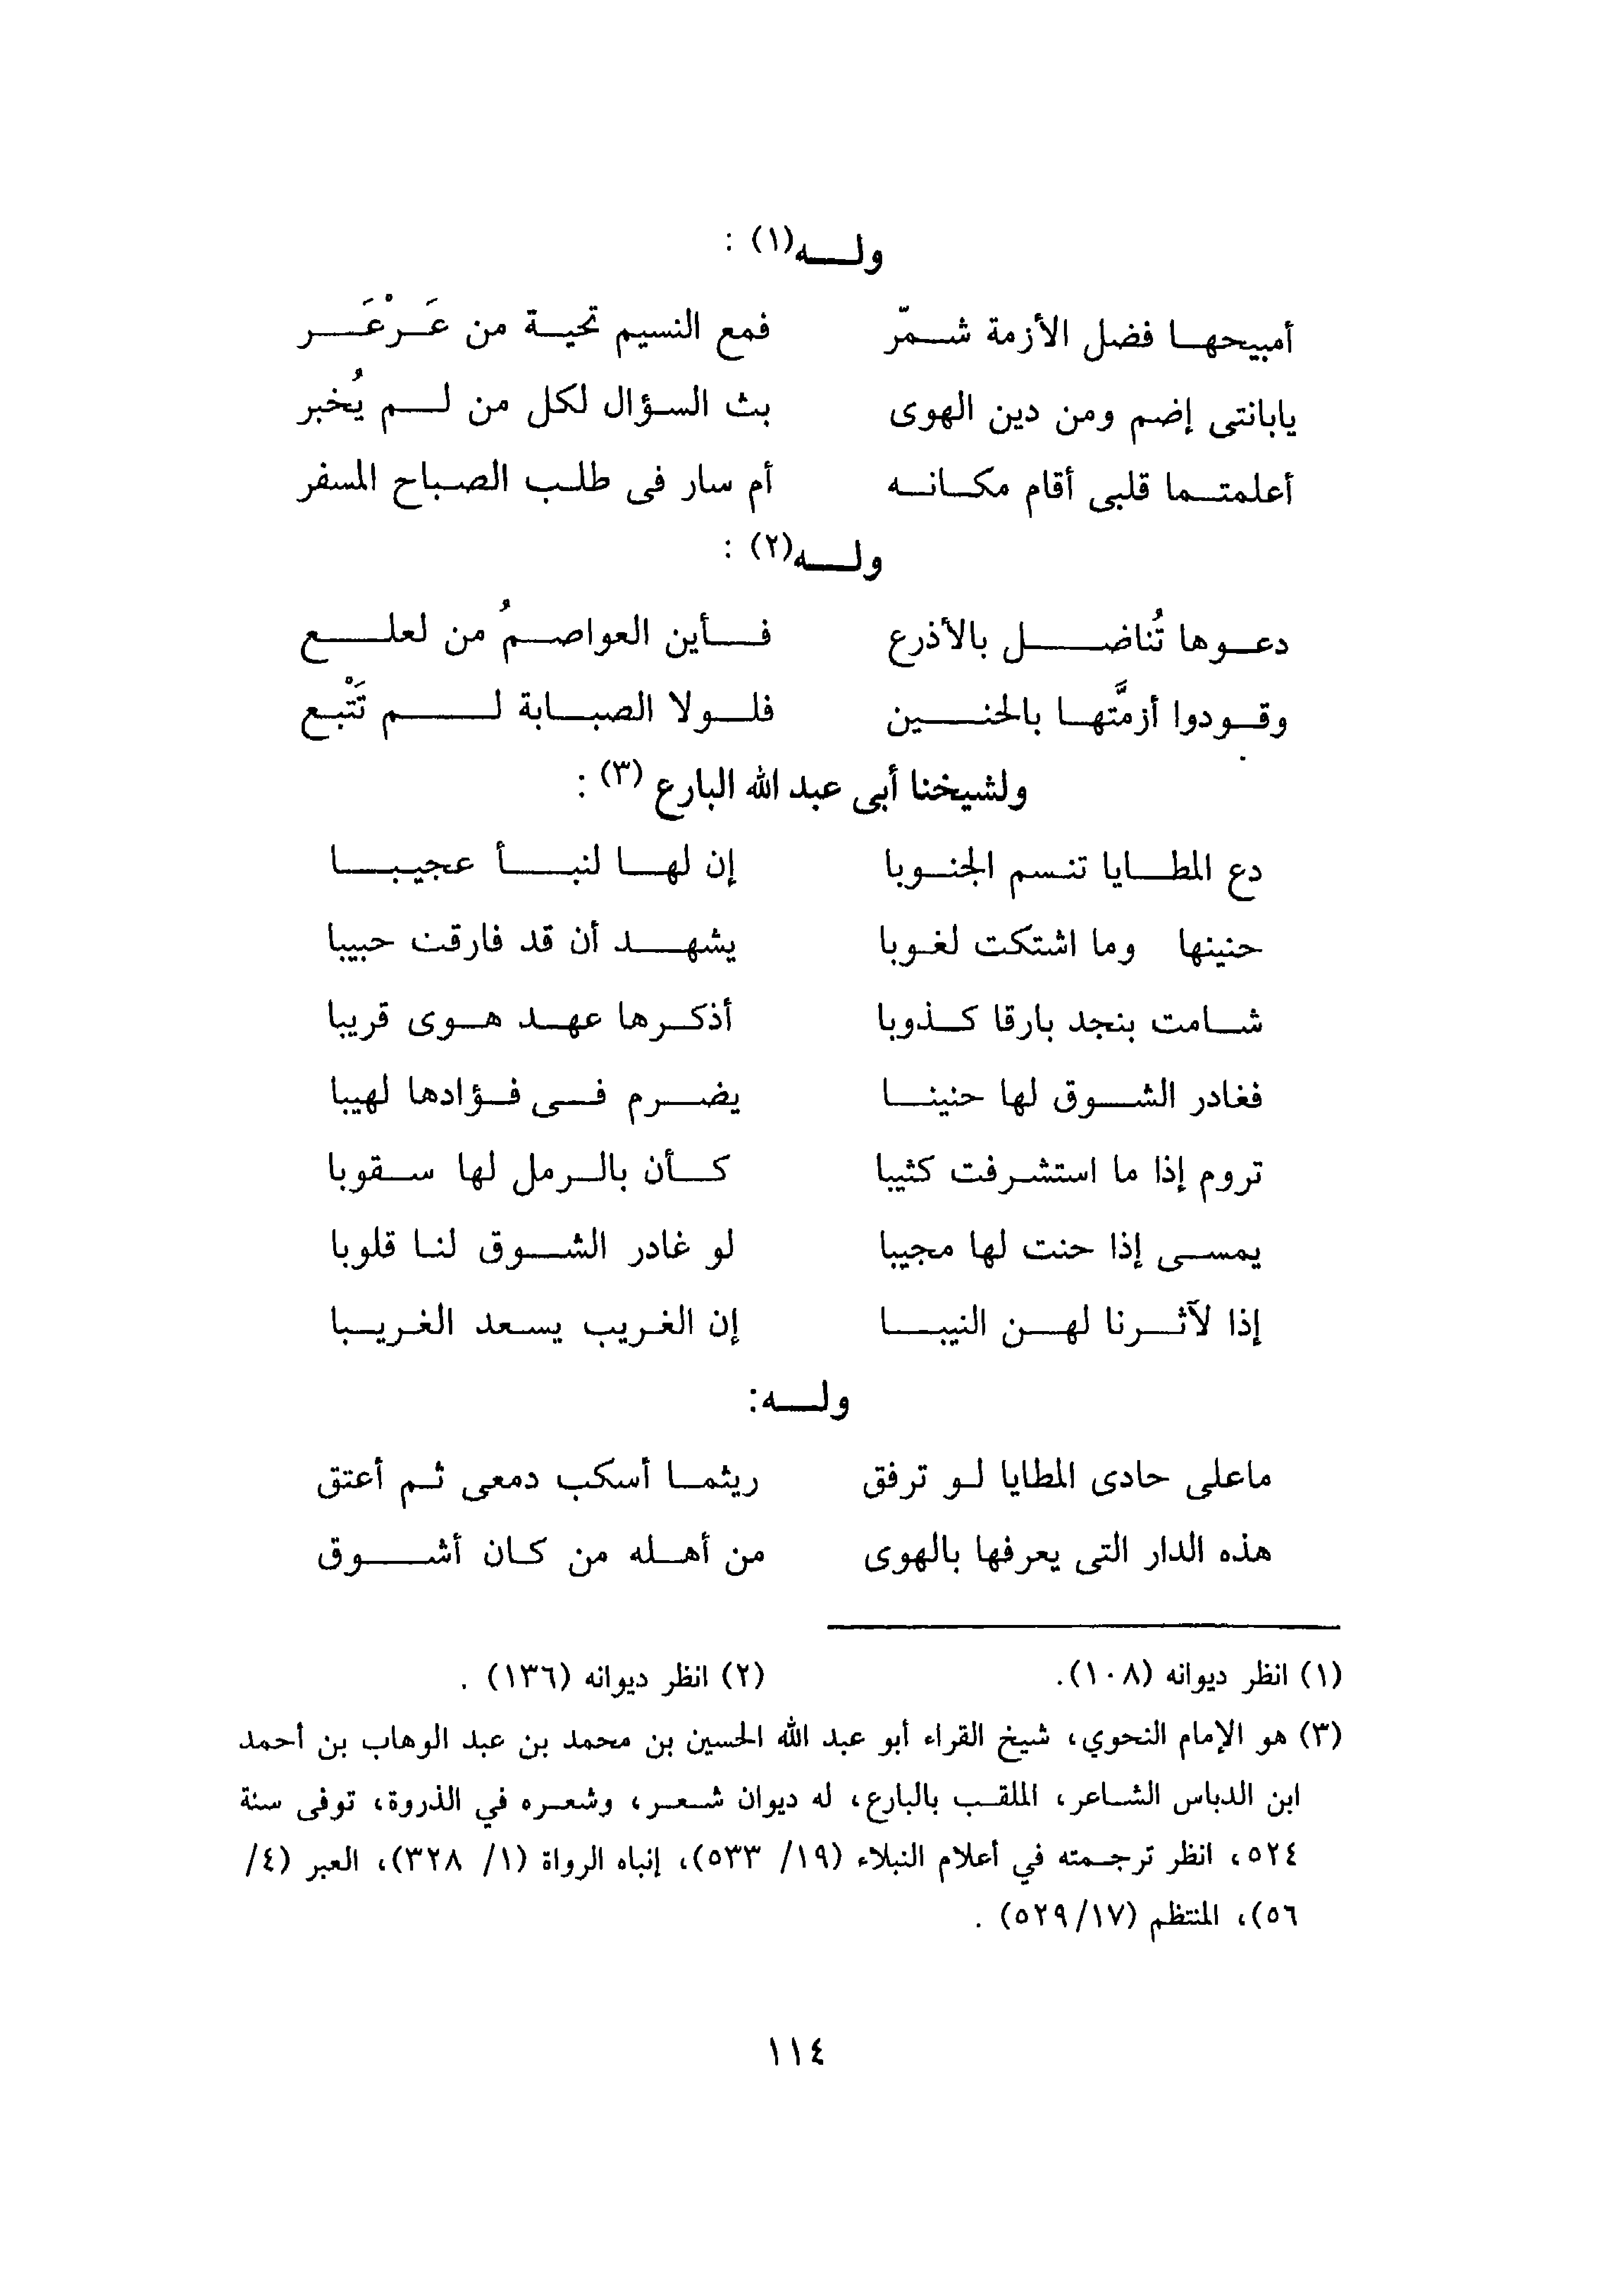 وله(١) :
أمبيحها فضل الأزمة شمّر فمع النسيم تحية من عَرْعَر
يابانتى إضم ومن دين الهوى بث السؤال لكل من لم يُخبر
أعلمتما قلبى أقام مكانه أم سار فى طلب الصباح المسفر
وله(٢) :
دعوها تُناضل بالأذرع فأين العواصمُ من لعلع
وقودوا أزمَّتها بالحنين فلولا الصبابة لم تَتْبع
ولشيخنا أبى عبد الله البارع (٣) :
دع المطايا تنسم الجنوبا إن لها لنبأ عجيبا
حنينها وما اشتكت لغوبا يشهد أن قد فارقت حبيبا
شامت بنجد بارقا كذوبا أذكرها عهد هوى قريبا
فغادر الشوق لها حنينا يضرم فى فؤادها لهيبا
تروم إذا ما استشرفت كثيبا كأن بالرمل لها سقوبا
يمسى إذا حنت لها مجيبا لو غادر الشوق لنا قلوبا
إذا لآثرنا لهن النيبا إن الغريب يسعد الغريبا
وله:
ماعلى حادى المطايا لو ترفق ريثما أسكب دمعى ثم أعتق
هذه الدار التى يعرفها بالهوى من أهله من كان أشوق
(١) انظر ديوانه (١٠٨). (٢) انظر ديوانه (١٣٦) .
(٣) هو الإمام النحوي، شيخ القراء أبو عبد الله الحسين بن محمد بن عبد الوهاب بن أحمد
ابن الدباس الشاعر، الملقب بالبارع، له ديوان شعر، وشعره في الذروة، توفى سنة
٥٢٤، انظر ترجمته في أعلام النبلاء (١٩/ ٥٣٣)، إنباه الرواة (١/ ٣٢٨)، العبر (٤/
٥٦)، المنتظم (٥٢٩/١٧) .
١١٤